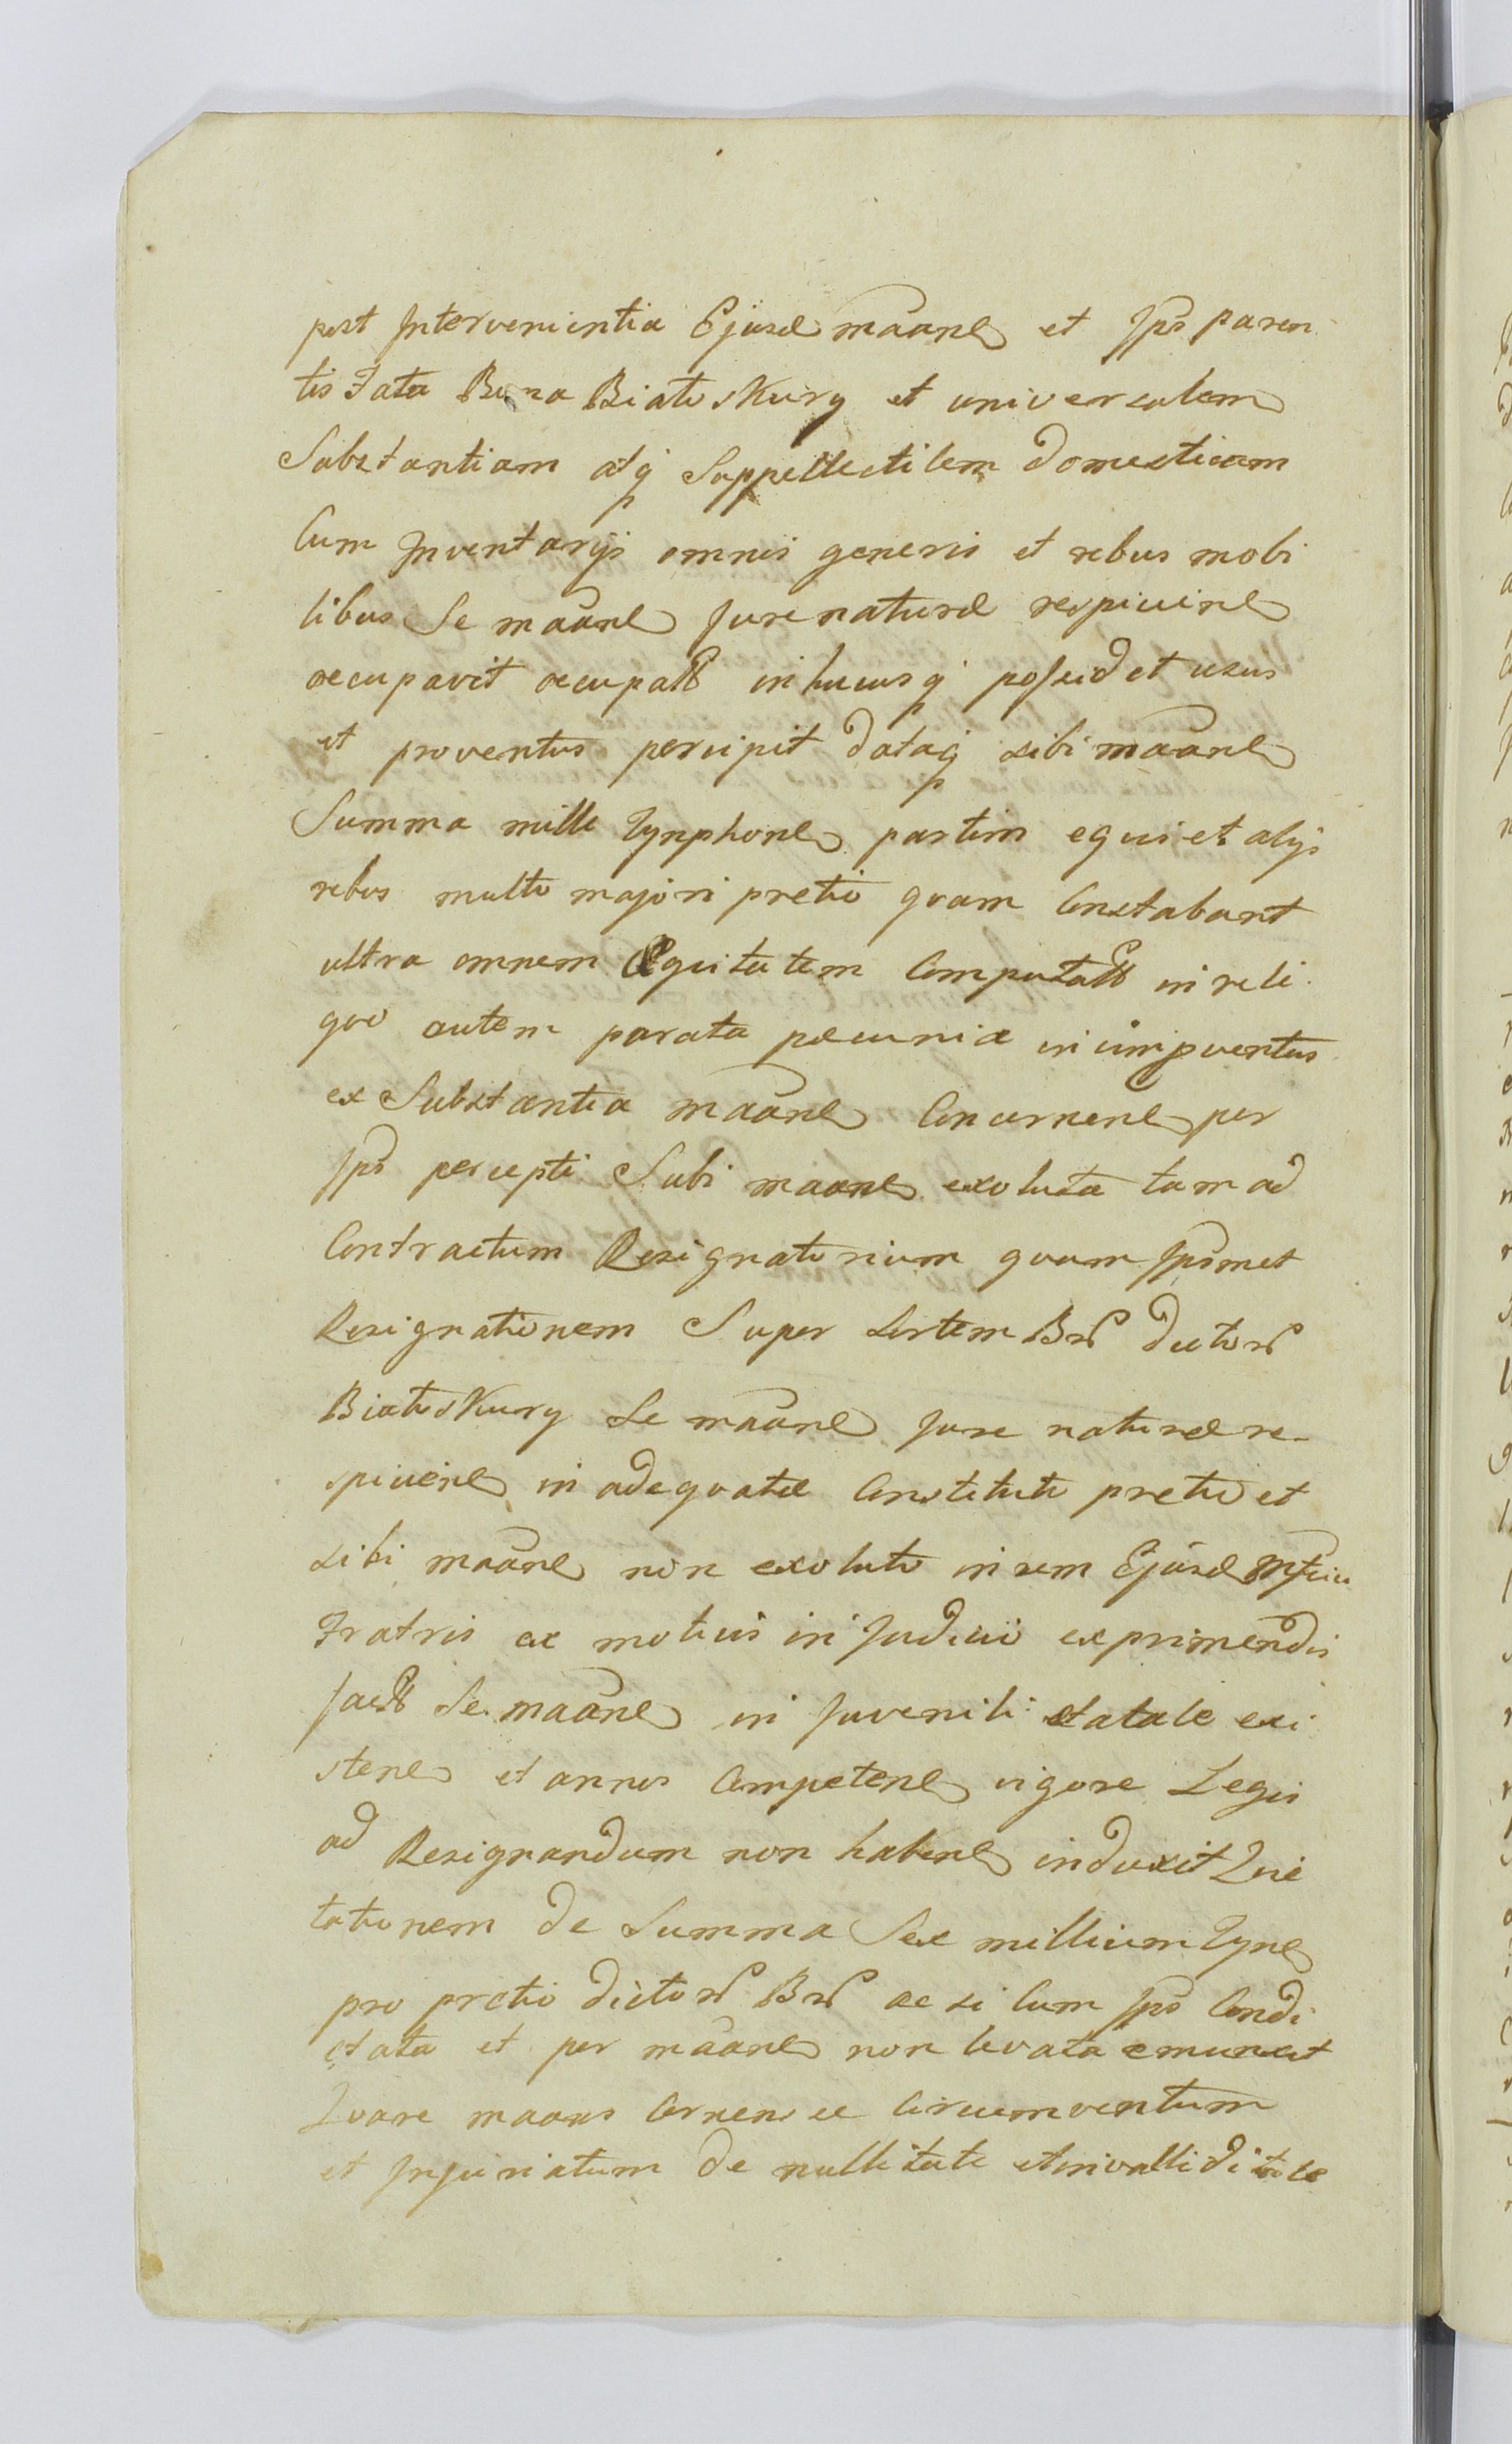 post Intervenientia Ejusd maane et Jps paren
tis Fata Bona Biatoskury et universalem
Substantiam atq Suppellectilem Domesticam
Cum Inventarijs omnis generis et rebus mobi
libus Se maane Jure naturæ respicien
occupavit occupatt in hucusq possidet usus
et proventus percipit dataq sibi maane
Summa mille Tynphone partim equis et alijs
rebus multo majori pretio quam Constabant
ultra omnem Æquitatem Computatt in reli
quo autem parata pecunia in
ex Substantia maane Concernene per
Jps percepti Subi maane exoluta tam ad
Contractum Resignatorium quam Jpsmet
Resignationem Super Sortem Bnr Dictor
Biatoskury Se maane Jure naturæ re-
spicien in adequate Constituto pretio et
sibi maane non exoluto in rem Ejusd
Fratris ex motivis in Judicio exprimendis
fact Se maane in Juvenili ætatale exi
stene et annos Competene vigore Legis
ad Resignandum non habene induxit Qui
tationem de Summa Sex millium Tyne
pro pretio dictor Bnr ac si Cum Jps Condi
ctata et per maane non levata
Quare maans Cernens se Circumventum
et Injuriatum de nullitate et invalliditate